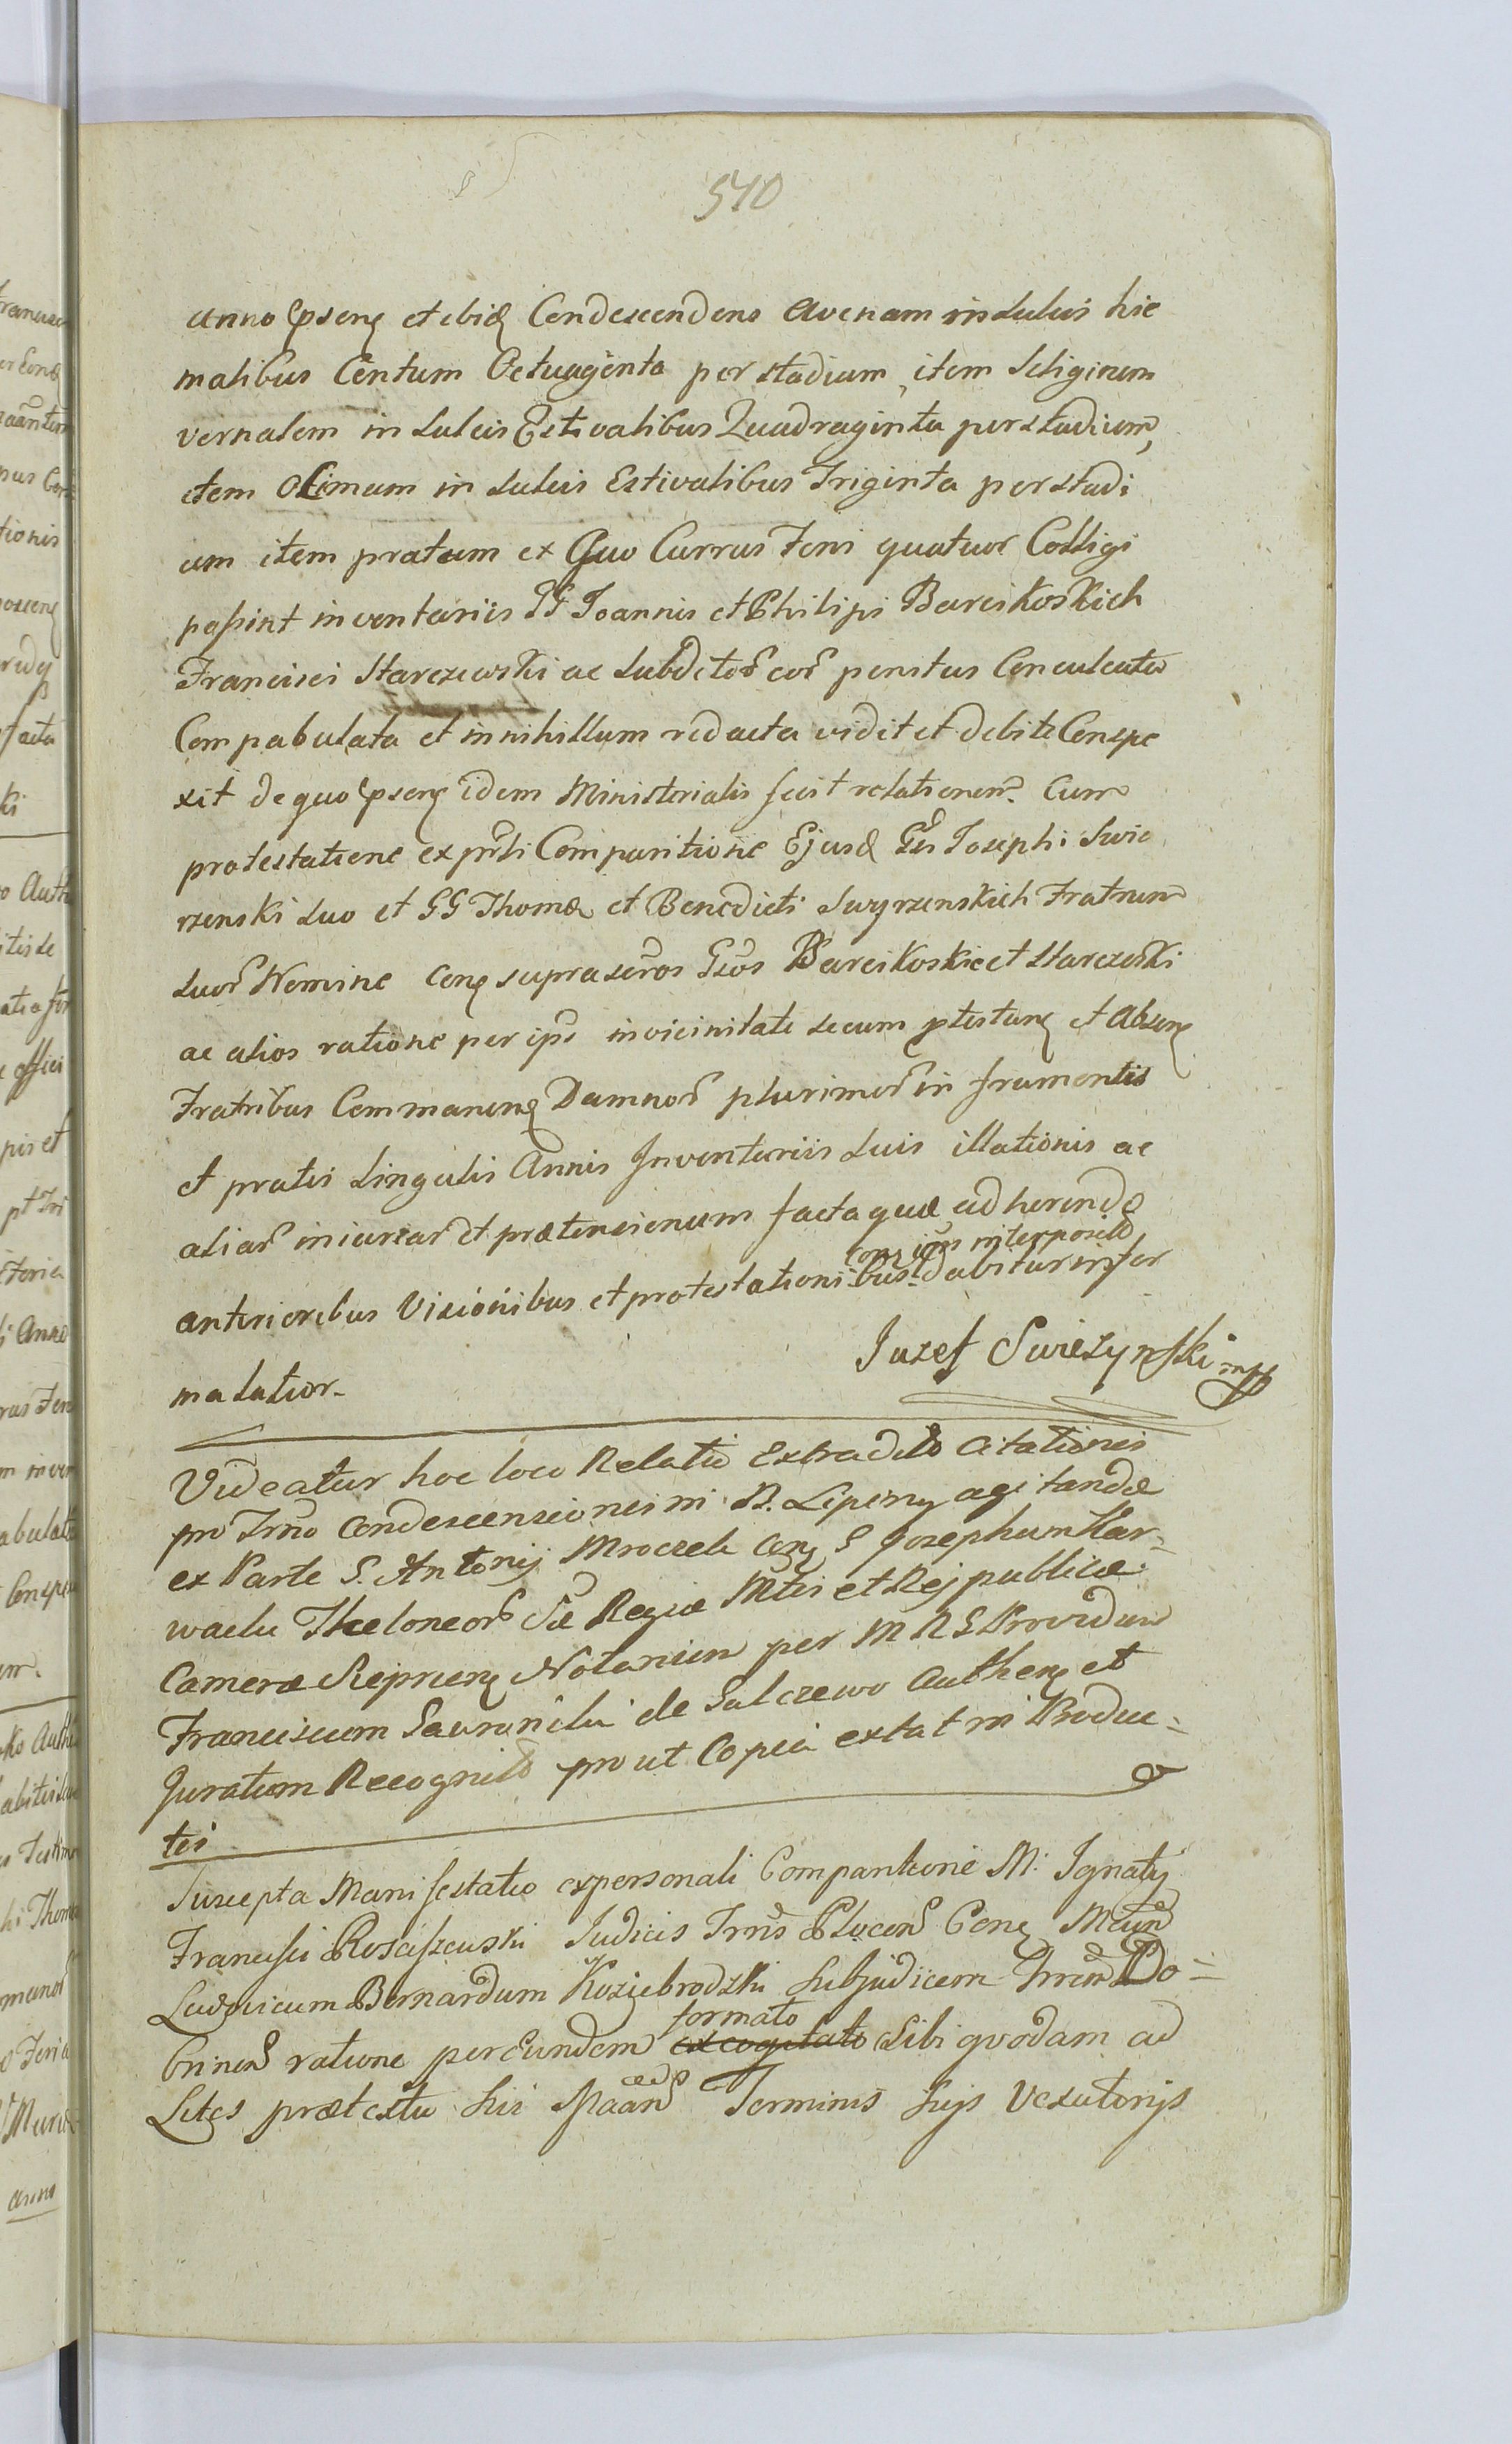 540
anno psenę et ibidę Condescendens Avenam in Sulcis hie
malibus Centum Octuaginta per stadium, item Seliginem
vernalem in Sulcis Estivalibus Quadraginta per stadium,
item Olimum in Sulcis Estivalibus Triginta per stadi
um item pratum ex Quo Currus Feni quatuor Colligi
possint inventariis GG Joannis et Philipi Barcikoskich
Francisci Starczewski ac Subditor eor penitus Conculcata
Compabulata et in nihillum redacta vidit et debite Conspe
xit de quo psenę idem Ministerialis fecit relationem. Cum
protestatione ex prsli Comparitione Ejusd Gsi Josephi Swie
rzenski suo et GG Thomæ et Benedicti Swyrzenskich Fratrum
Suor Nomine conę suprascros Gsos Barcikoskie et Starczeski
ac alios ratione per ipos in vicinitate secum ptestanę et Absenę
Fratribus Commanenę Damnor plurimor in frumentis
et pratis Singulis Annis Inventariis Suis illationis ac
aliar iniuriar et prætensionum facta quæ adhærendo
conę ipos interpositis
anterioribus Visionibus et protestationibus dabitur infor
matatior.
Juzef Swierzynski mpp
Videatur hoc loco Relatio Extradito Citationis
pro Trno Condescensionis in B. Lipiny agitandæ
ex Parte G. Antonij Mroczek conę G Josephum Kar-
wacki Theloneor Sæ Regiæ Mtis et Rejpublicæ
Cameræ Repinenę Notarium per MRS Providum
Franciscum Sawronski de Salczewo Authenę et
Juratum Recognito pro ut Copia extat in Produc-
tis
Suscepta Manifestatio ex personali Comparitione M. Ignatij
Francisci Rosciszewski Judicis Trris Plocens Conę Mcum
Ludovicum Bernardum Koziebrodzki Subjudicem Trrem Do-
brinens ratione per Eundem excogitato formato Sibi quodam ad
Lites prætextu his Terminis hujs Vexatorijs